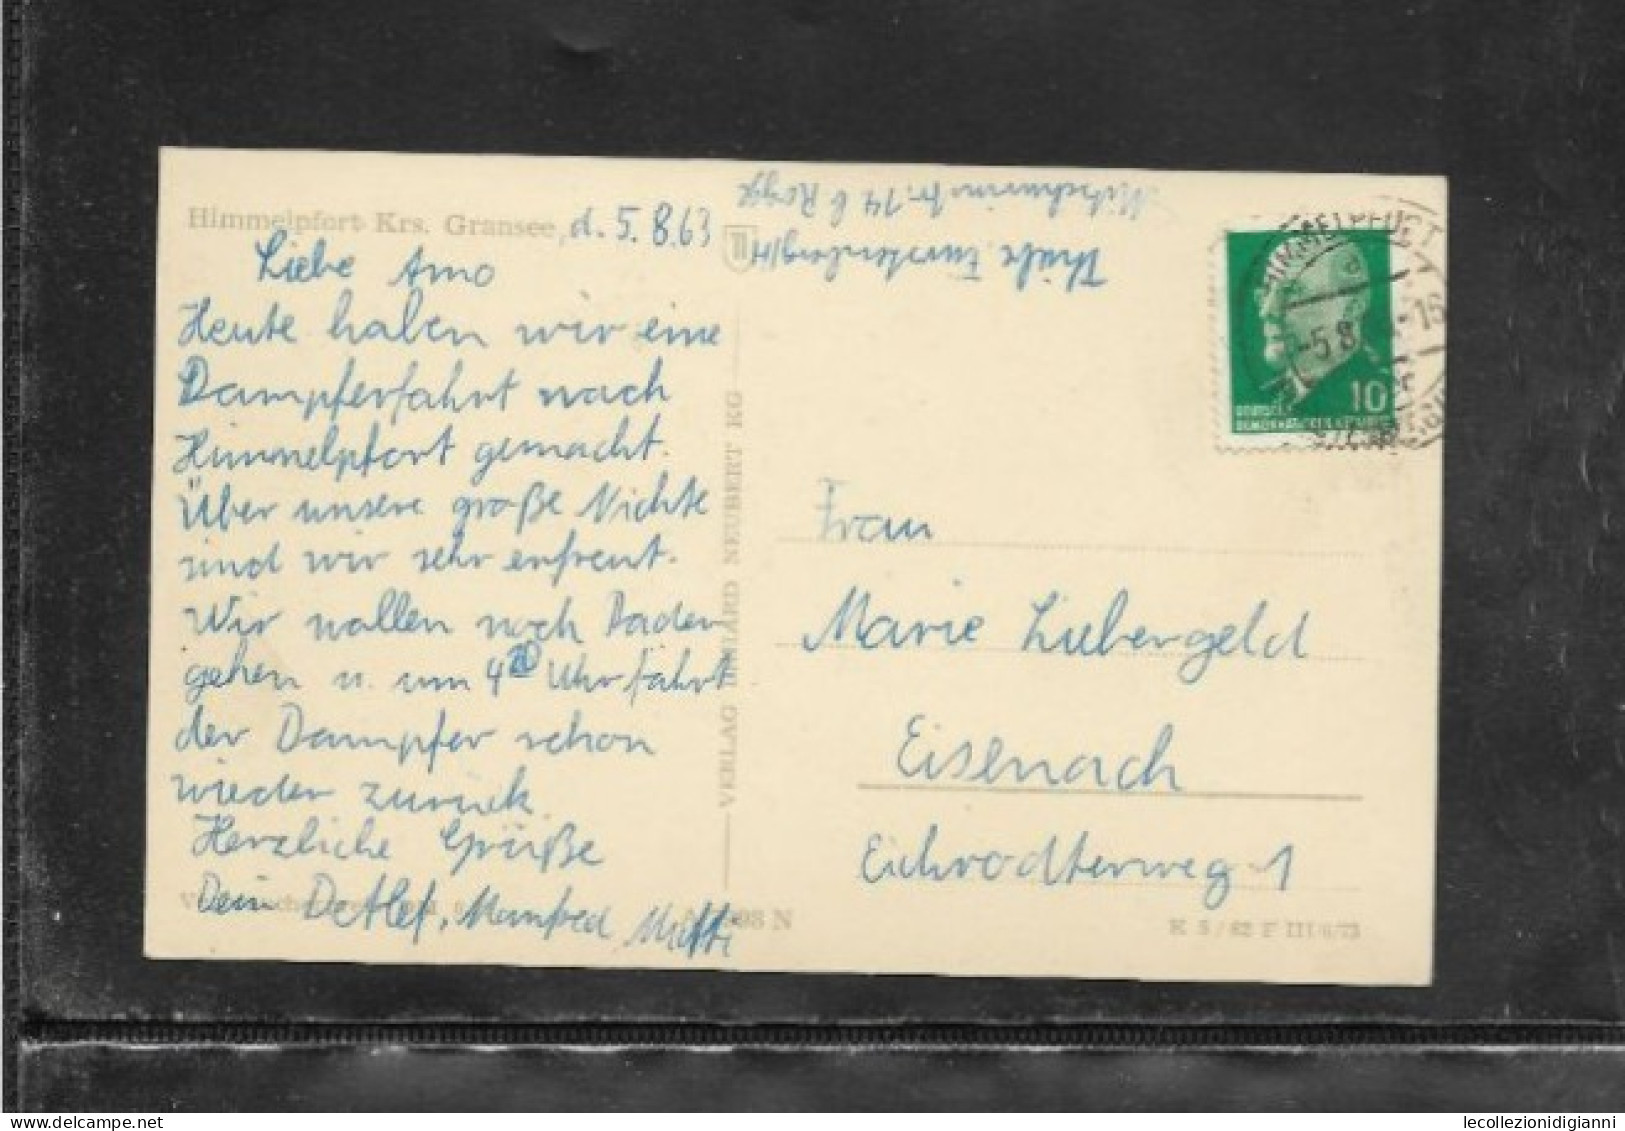 Himmelpfort Krs. Gransee, d. 5.8.63
Liebe Amo
Heute haben wir eine
Dampferfahrt nach
Himmelpfort gemacht.
Über unsere große Nichte
sind wir sehr erfreut.
Wir wollen noch Baden
gehen u. um 4 20 Uhr fährt
der Dampfer schon
wieder zurück
Herzliche Grüße
Dein Detlef, Manfred, Mutti
VERLAG BILD UND HEIMAT REICHENBACH
Thiele Fürstenberg/H
Frau
Marie Liebergeld
Eisenach
Eichrodterweg 1
HIMMELPFORT
-5.8
10
DEUTSCHE
DEMOKRATISCHE REPUBLIK
K 5/62 F III/6/73
lecollezionidigianni